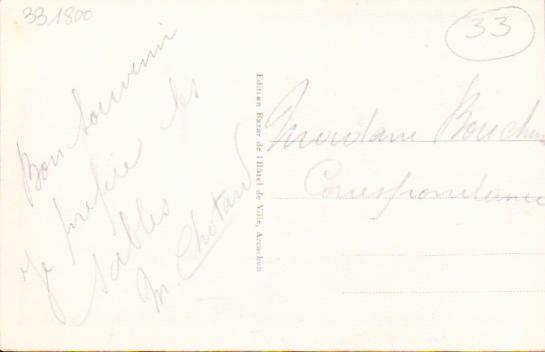 33 1800
33
Bon souvenir
je préfère les
sables
M. Chotard
Edition Bazar de l'Hôtel de Ville, Arcachon
Correspondance